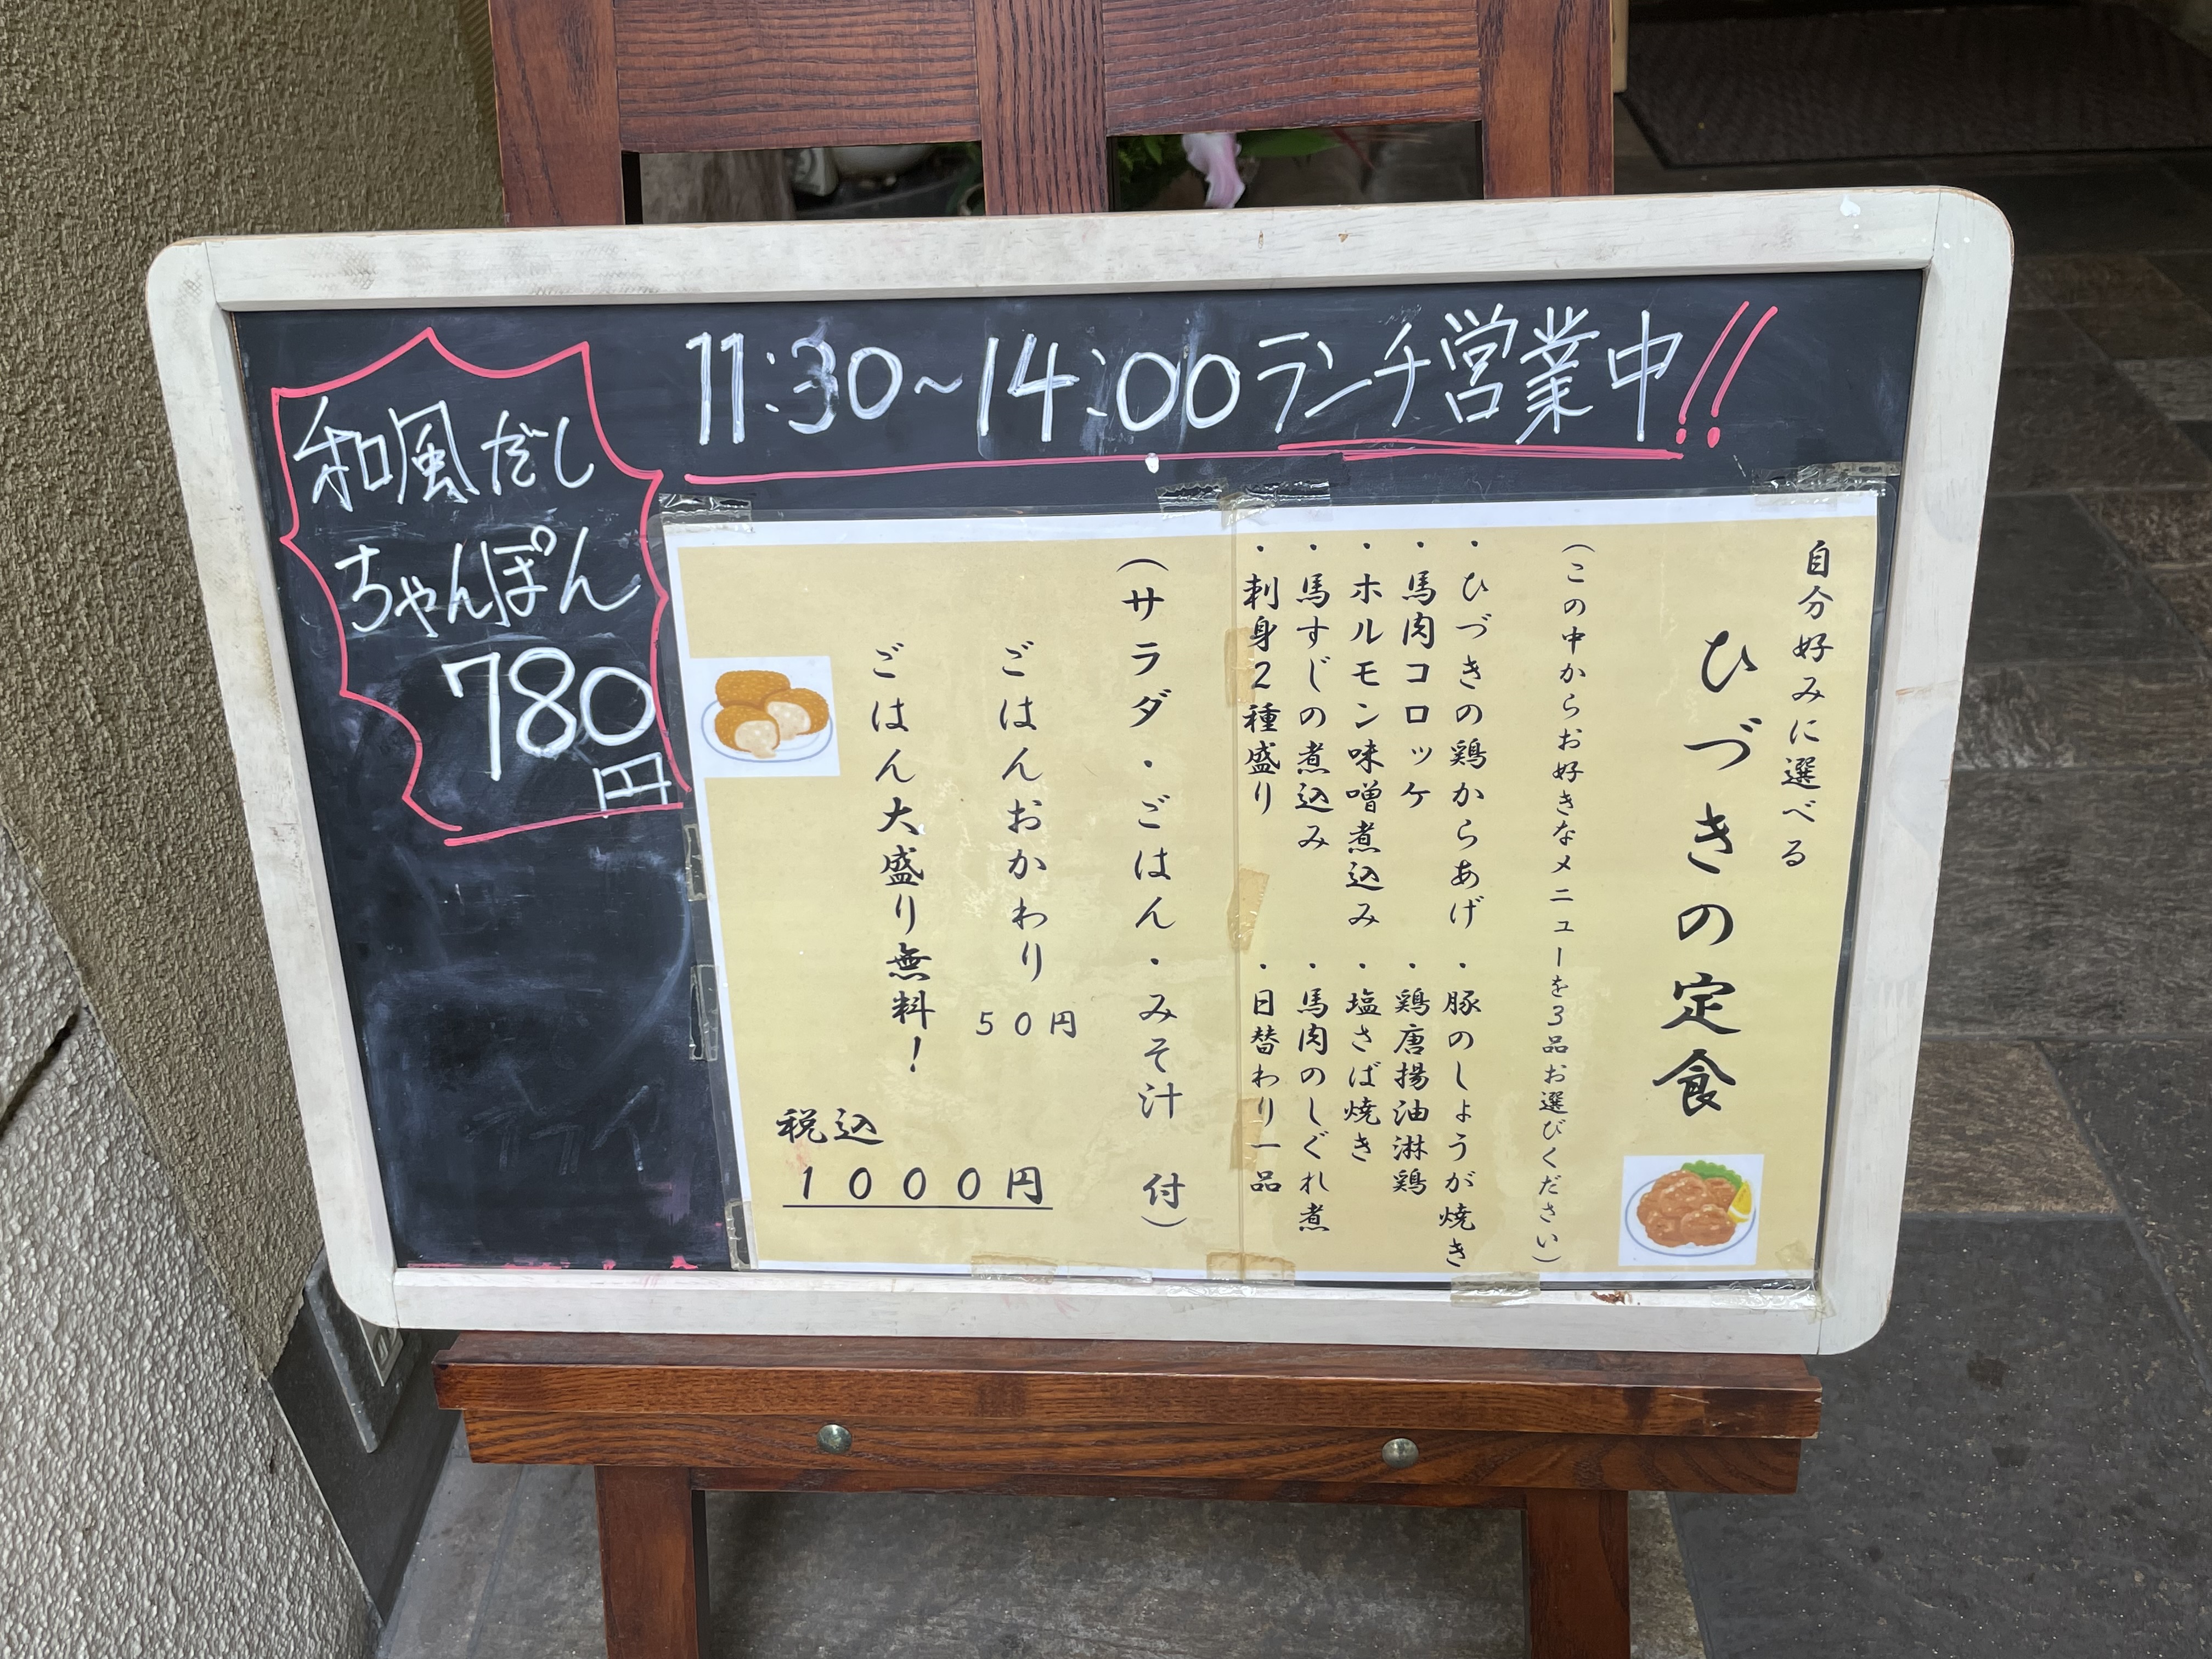 11:30~14:00ランチ営業中!!
和風だし
ちゃんぽん
780
円
自分好みに選べる
ひづきの定食
(この中からお好きなメニューを3品お選びください)
・ひづきの鶏からあげ ・豚のしょうが焼き
・馬肉コロッケ ・鶏唐揚油淋鶏
・ホルモン味噌煮込み ・塩さば焼き
・馬すじの煮込み ・馬肉のしぐれ煮
・刺身2種盛り ・日替わり一品
(サラダ・ごはん・みそ汁 付)
ごはんおかわり 50円
ごはん大盛り無料!
税込
1000円